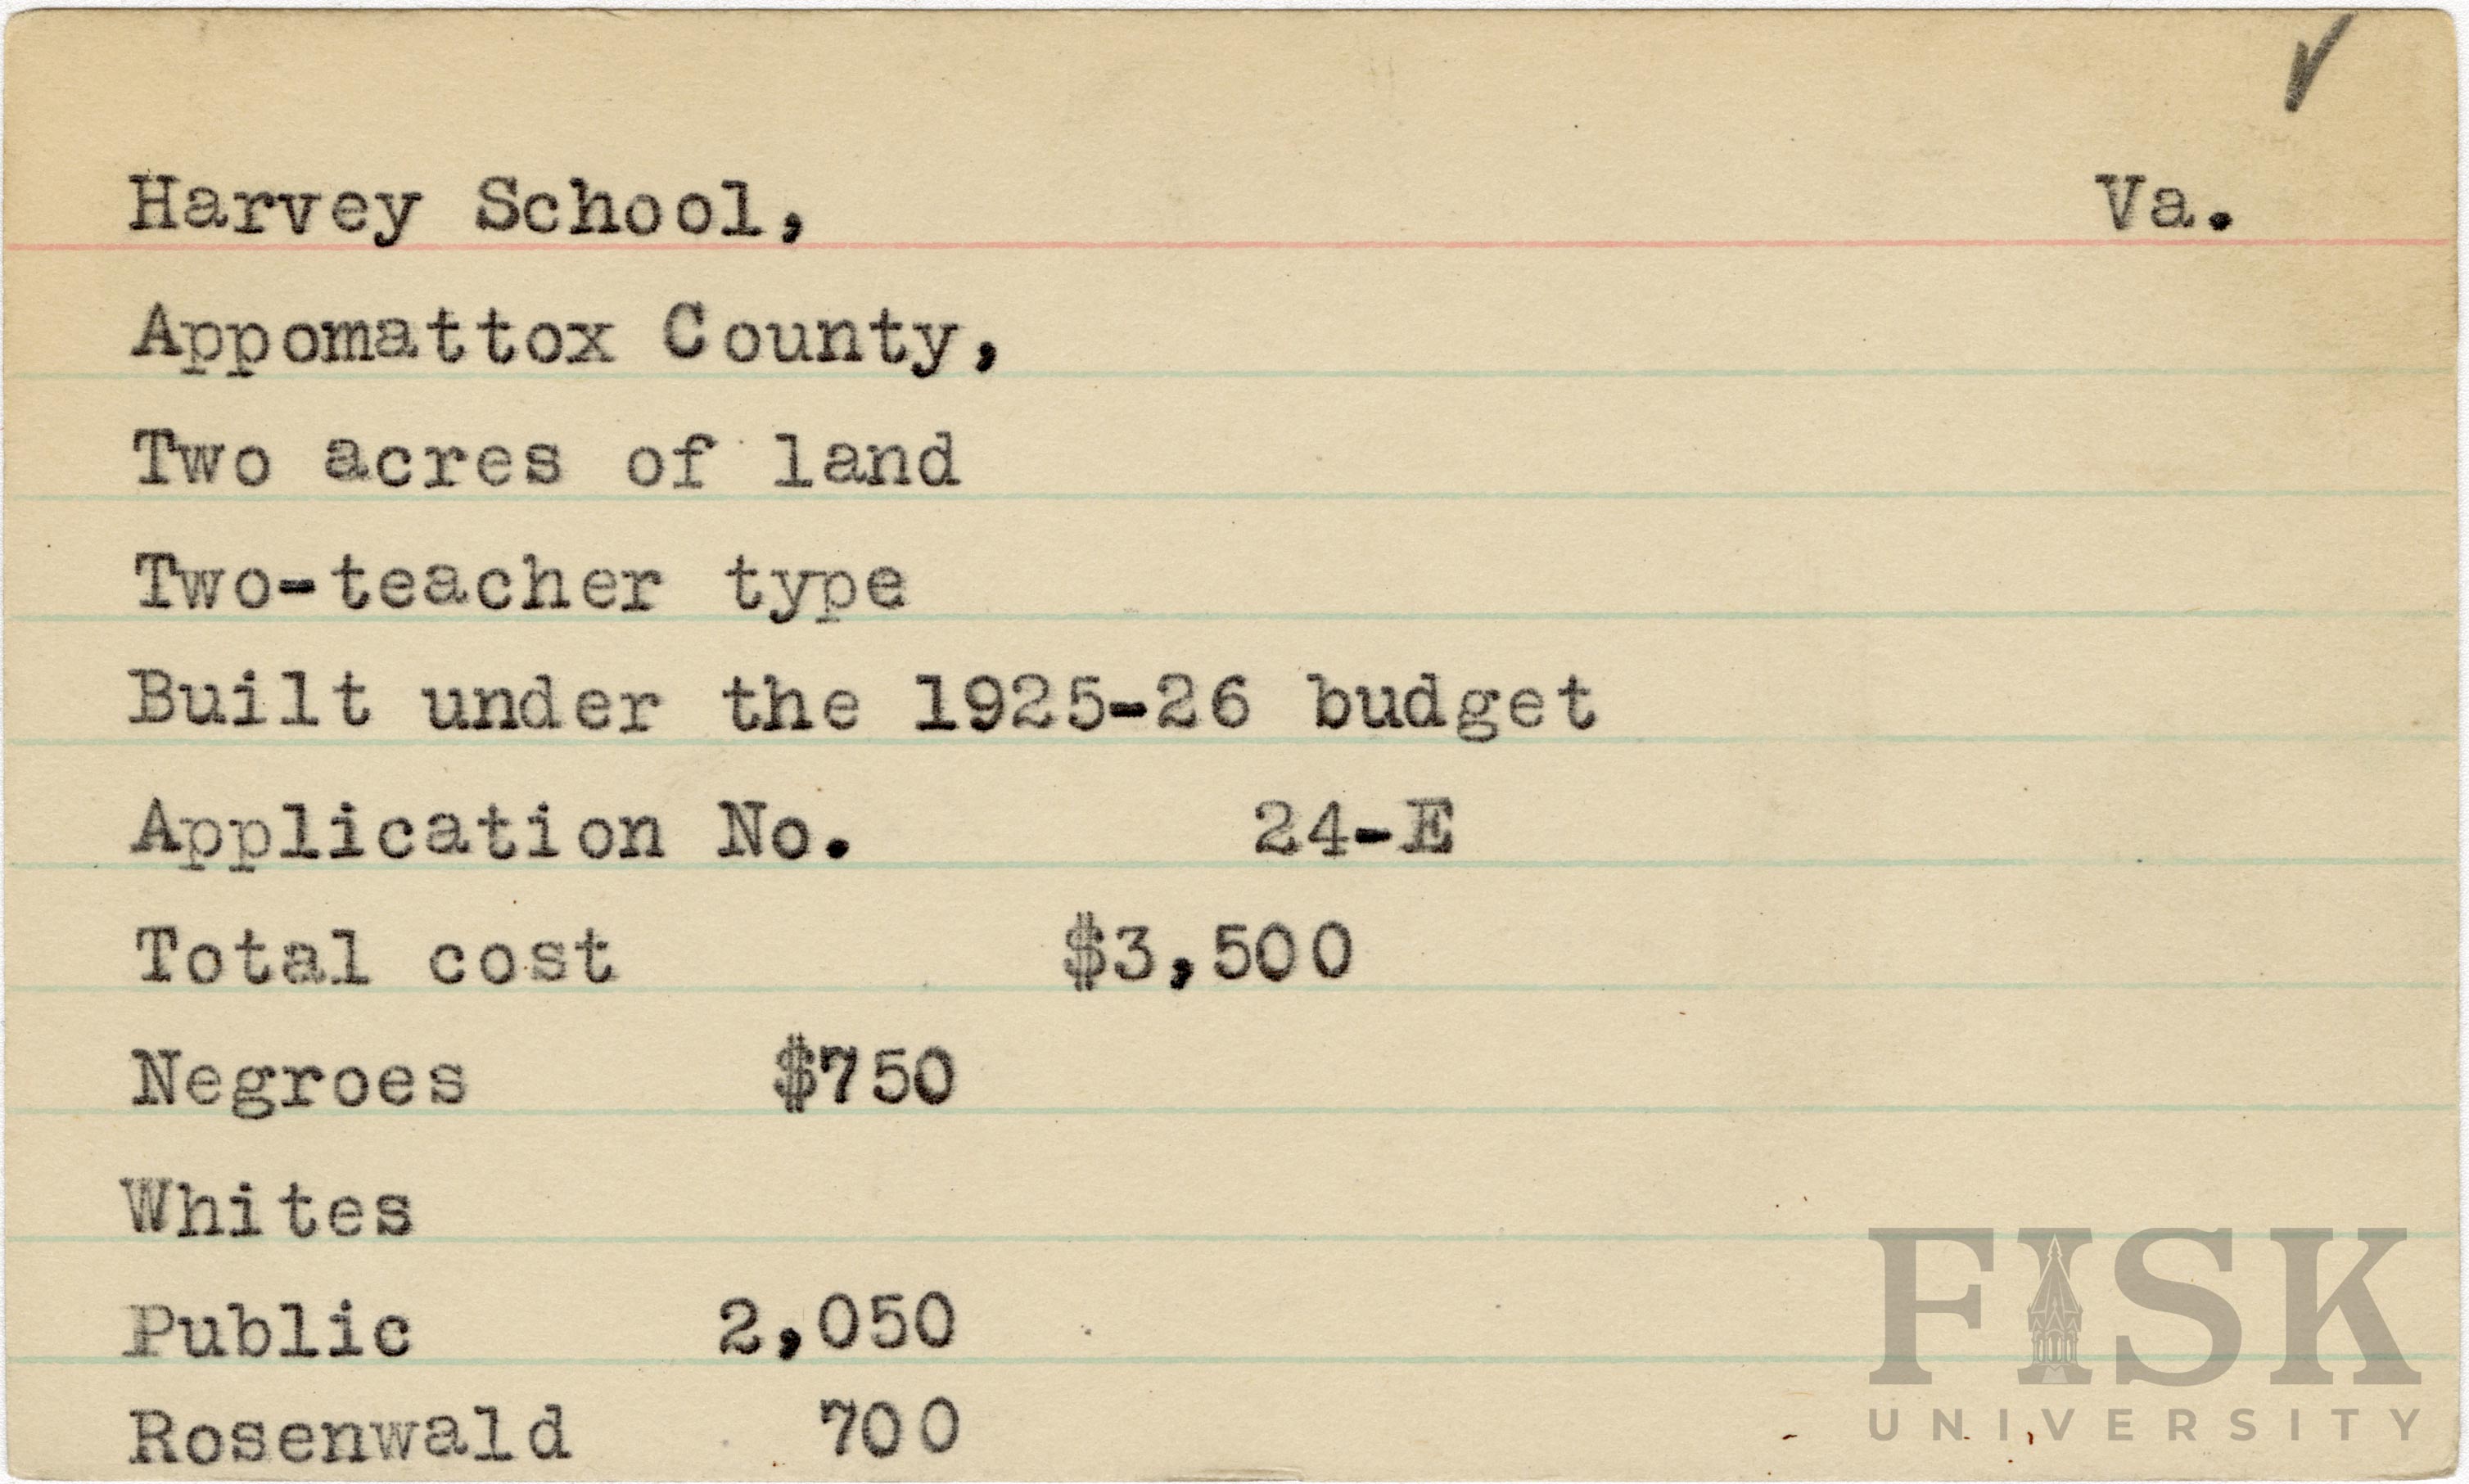 Harvey School, Va.
Appomattox County,
Two acres of land
Two-teacher type
Built under the 1925-26 budget
Application No. 24-E
Total cost $3,500
Negroes $750
Whites
Public 2,050
Rosenwald 700
FISK
UNIVERSITY